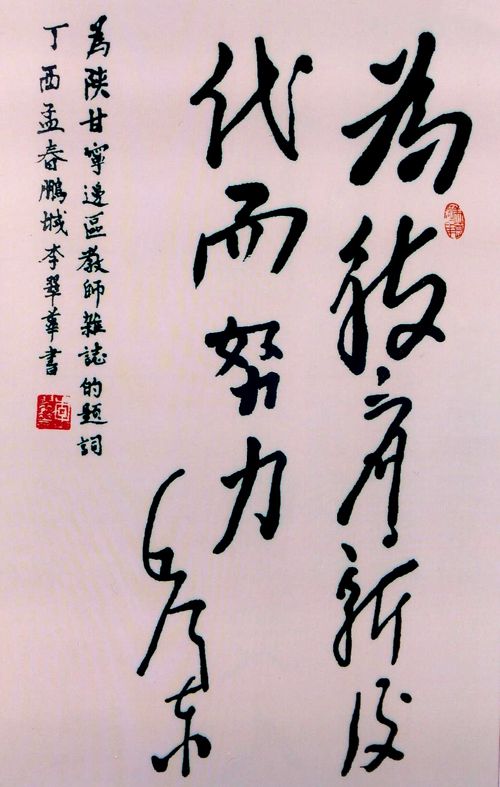 為教育新後
代而努力
毛澤東
為陝甘寧邊區教師雜誌的題詞
丁酉孟春鵬城李翠華書